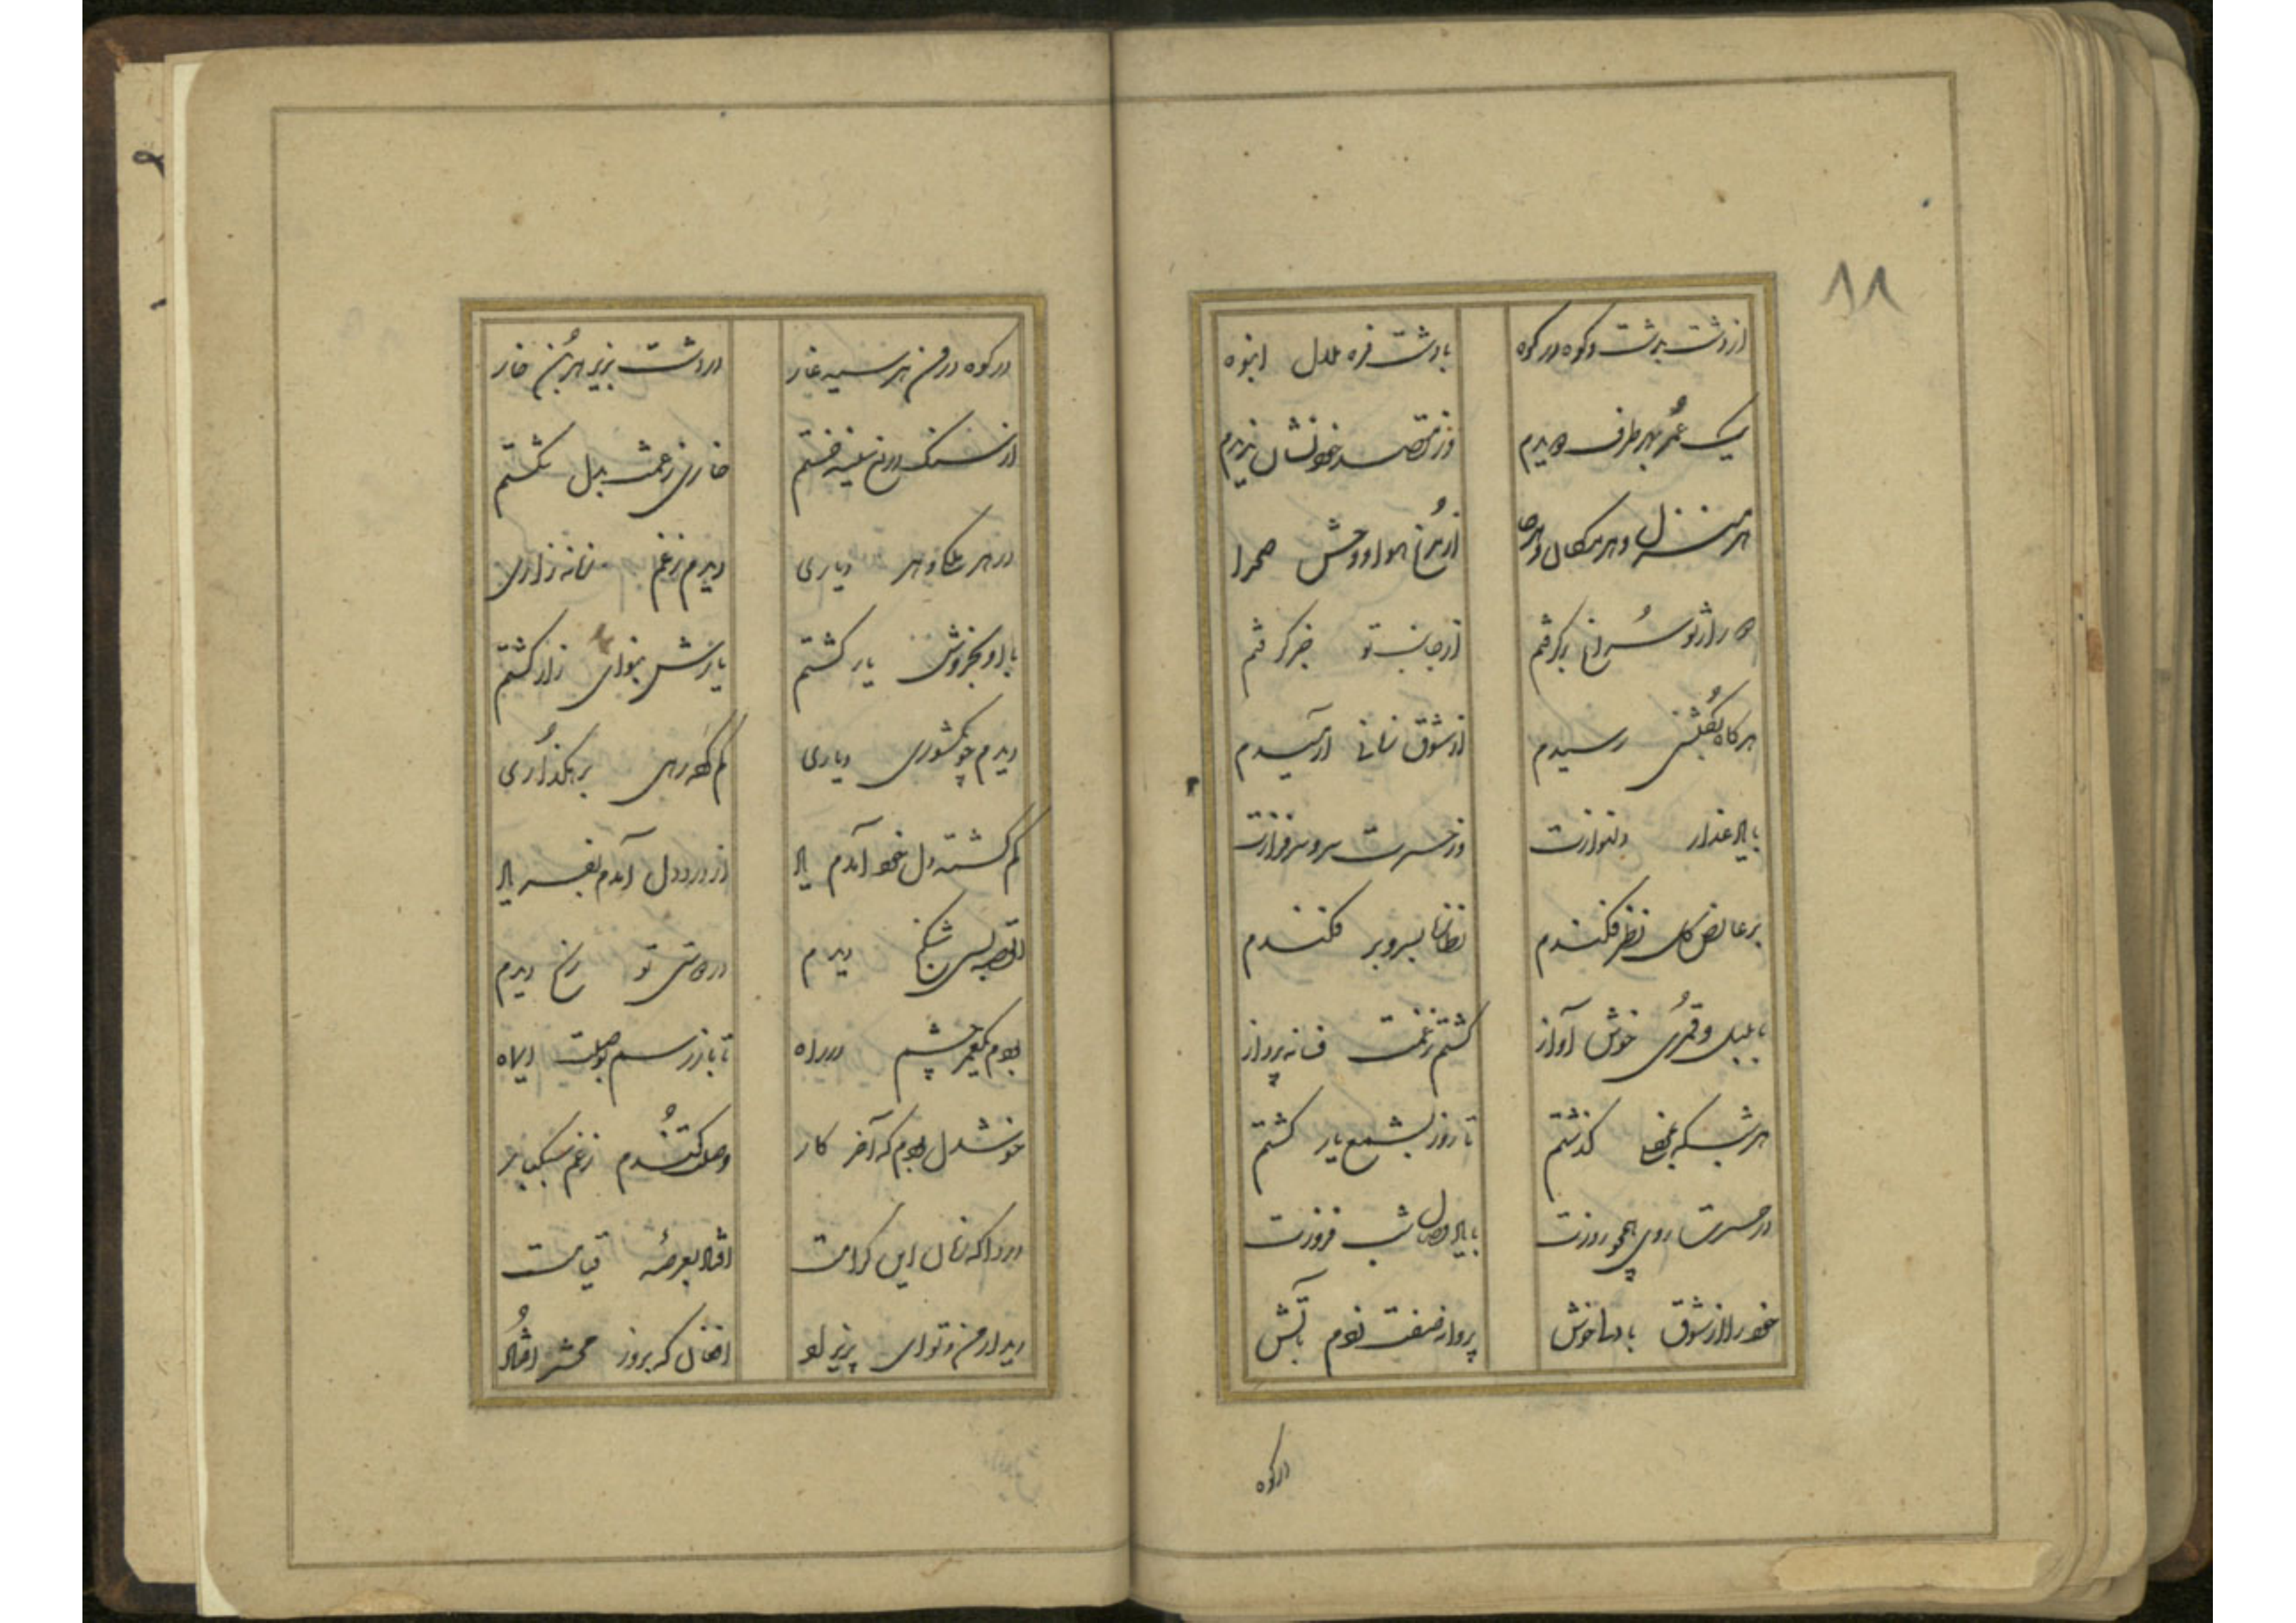 ۸۸
از دشت بدشت و کوه در کوه
با دشت فزه ملال انبوه
یک عمر بهر طرف دویدم
وز مقصد خود نشان ندیدم
هر منزل و هر مکان و هرجا
از مرغ هوا و وحش صحرا
از تو سراغ برگرفتم
از جانب تو خبر گرفتم
هرگاه بگلشنی رسیدم
از شوق زمانی آرمیدم
با لاله عذار دلنوازت
وز حسرت سرو سرفرازت
بر عارض گل نظر فکندم
نظاره بسرو بر فکندم
با بلبل و قمری خوش آواز
گشتم ز غمت فسانه پرداز
هر شب که بغمها گذشتم
تا روز بشمع یار گشتم
در حسرت روی همچو روزت
شب فروزت
خود را از شوق با دل خوش
پروانه صفت زدم بآتش
در کوه
در کوه درون هر سیه غار
در دشت بزیر هر بن خار
از سنگ درم سفینه خستم
خاری ز غمت بدل شکستم
در هر ملکی و هر دیاری
دیدم ز غم زمانه زاری
با او بخروش یار گشتم
یارش بنوای زار گشتم
دیدم چو بکشوری دیاری
گم کرده رهی برهگذاری
گم گشته دل خود آمدم یاد
از درد دل آمدم بفریاد
القصه بسی شکنج دیدم
در دوستی تو رنج دیدم
بودم بهمه عمر چشم در راه
تا باز رسم بوصلت ای ماه
خوشدل بودم که آخر کار
وصلت کندم ز غم سبکبار
دردا که زمان این کرامت
افتاد بعرصه قیامت
دیدار من و تو ای پریزاد
افغان که بروز محشر افتاد